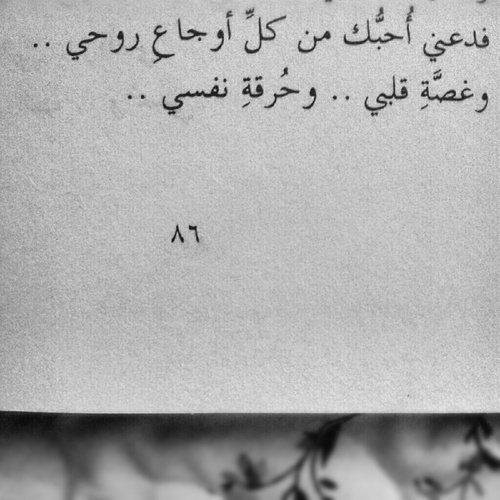 فدعني أُحبُّك من كلِّ أوجاعِ روحي ..
وغصَّةِ قلبي .. وحُرقةِ نفسي ..
٨٦